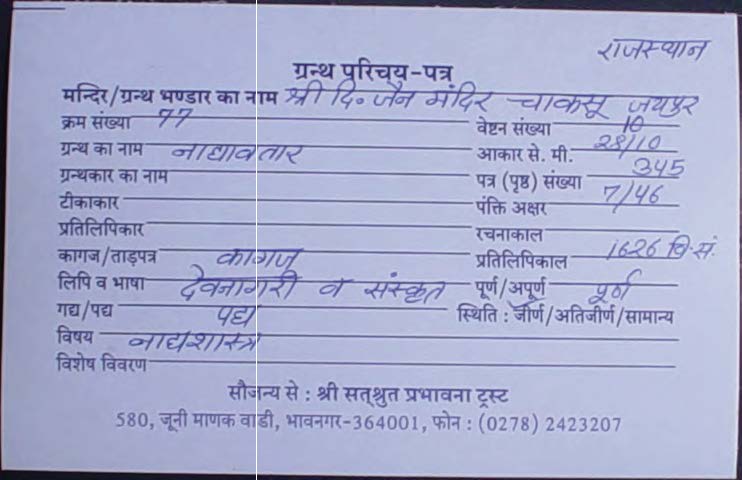 राजस्थान
ग्रन्थ परिचय-पत्र
मन्दिर/ग्रन्थ भण्डार का नाम श्री दि॰ जैन मंदिर चाकसू जयपुर
क्रम संख्या 77 वेष्टन संख्या 10
ग्रन्थ का नाम नाद्यावतार आकार से. मी. 28/10
ग्रन्थकार का नाम पत्र (पृष्ठ) संख्या 345
टीकाकार पंक्ति अक्षर 7/46
प्रतिलिपिकार रचनाकाल
कागज/ताड़पत्र कागज प्रतिलिपिकाल 1626 वि.सं.
लिपि व भाषा देवनागरी व संस्कृत पूर्ण/अपूर्ण पूर्ण
गद्य/पद्य पद्य स्थिति : जीर्ण/अतिजीर्ण/सामान्य
विषय नाद्यशास्त्र
विशेष विवरण
सौजन्य से : श्री सत्श्रुत प्रभावना ट्रस्ट
580, जूनी माणक वाडी, भावनगर-364001, फोन : (0278) 2423207